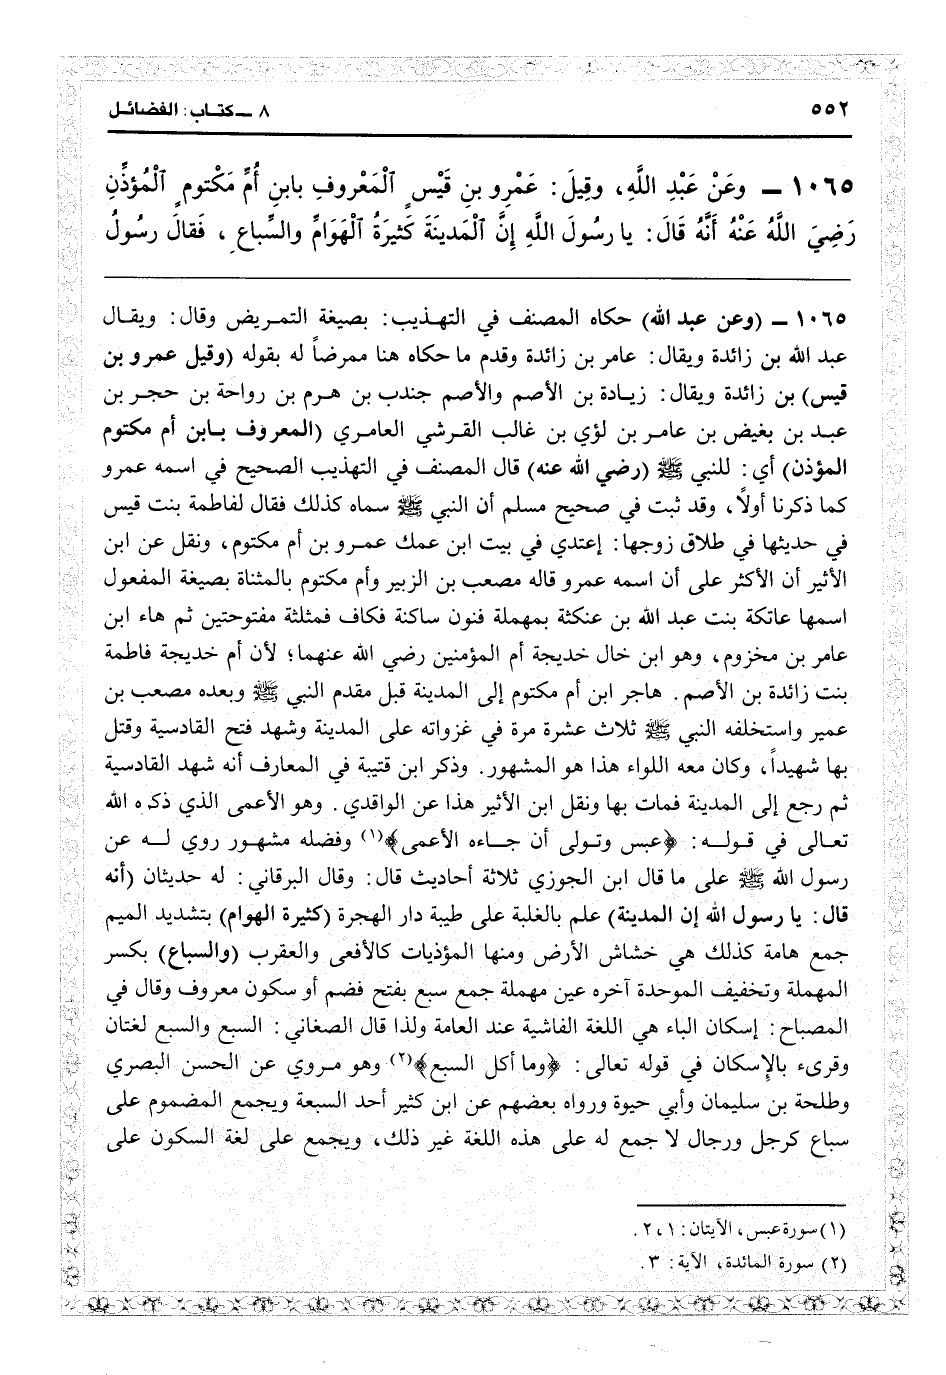 ٥٥٢
٨ ــ كتاب: الفضائل
١٠٦٥ ــ وعَنْ عَبْدِ اللَّهِ، وقِيلَ: عَمْرِو بنِ قَيْسٍ ٱلْمَعْروفِ بابنِ أُمِّ مَكْتومٍ ٱلْمُؤذِّنِ
رَضِيَ اللَّهُ عَنْهُ أَنَّهُ قَالَ: يا رسُولَ اللَّهِ إِنَّ ٱلْمَدينَةَ كَثيرَةُ ٱلْهَوَامِّ والسِّباعِ، فَقالَ رسُولُ
١٠٦٥ ــ (وعن عبد الله) حكاه المصنف في التهذيب: بصيغة التمريض وقال: ويقال
عبد الله بن زائدة ويقال: عامر بن زائدة وقدم ما حكاه هنا ممرضاً له بقوله (وقيل عمرو بن
قيس) بن زائدة ويقال: زيادة بن الأصم والأصم جندب بن هرم بن رواحة بن حجر بن
عبد بن بغيض بن عامر بن لؤي بن غالب القرشي العامري (المعروف بابن أم مكتوم
المؤذن) أي: للنبي ﷺ (رضي الله عنه) قال المصنف في التهذيب الصحيح في اسمه عمرو
كما ذكرنا أولاً، وقد ثبت في صحيح مسلم أن النبي ﷺ سماه كذلك فقال لفاطمة بنت قيس
في حديثها في طلاق زوجها: إعتدي في بيت ابن عمك عمرو بن أم مكتوم، ونقل عن ابن
الأثير أن الأكثر على أن اسمه عمرو قاله مصعب بن الزبير وأم مكتوم بالمثناة بصيغة المفعول
اسمها عاتكة بنت عبد الله بن عنكثة بمهملة فنون ساكنة فكاف فمثلثة مفتوحتين ثم هاء ابن
عامر بن مخزوم، وهو ابن خال خديجة أم المؤمنين رضي الله عنهما؛ لأن أم خديجة فاطمة
بنت زائدة بن الأصم. هاجر ابن أم مكتوم إلى المدينة قبل مقدم النبي ﷺ وبعده مصعب بن
عمير واستخلفه النبي ﷺ ثلاث عشرة مرة في غزواته على المدينة وشهد فتح القادسية وقتل
بها شهيداً، وكان معه اللواء هذا هو المشهور. وذكر ابن قتيبة في المعارف أنه شهد القادسية
ثم رجع إلى المدينة فمات بها ونقل ابن الأثير هذا عن الواقدي. وهو الأعمى الذي ذكره الله
تعالى في قوله: ﴿عبس وتولى أن جاءه الأعمى﴾(١) وفضله مشهور روي له عن
رسول الله ﷺ على ما قال ابن الجوزي ثلاثة أحاديث قال: وقال البرقاني: له حديثان (أنه
قال: يا رسول الله إن المدينة) علم بالغلبة على طيبة دار الهجرة (كثيرة الهوام) بتشديد الميم
جمع هامة كذلك هي خشاش الأرض ومنها المؤذيات كالأفعى والعقرب (والسباع) بكسر
المهملة وتخفيف الموحدة آخره عين مهملة جمع سبع بفتح فضم أو سكون معروف وقال في
المصباح: إسكان الباء هي اللغة الفاشية عند العامة ولذا قال الصغاني: السبع والسبع لغتان
وقرىء بالإسكان في قوله تعالى: ﴿وما أكل السبع﴾(٢) وهو مروي عن الحسن البصري
وطلحة بن سليمان وأبي حيوة ورواه بعضهم عن ابن كثير أحد السبعة ويجمع المضموم على
سباع كرجل ورجال لا جمع له على هذه اللغة غير ذلك، ويجمع على لغة السكون على
(١) سورة عبس، الآيتان: ١، ٢.
(٢) سورة المائدة، الآية: ٣.